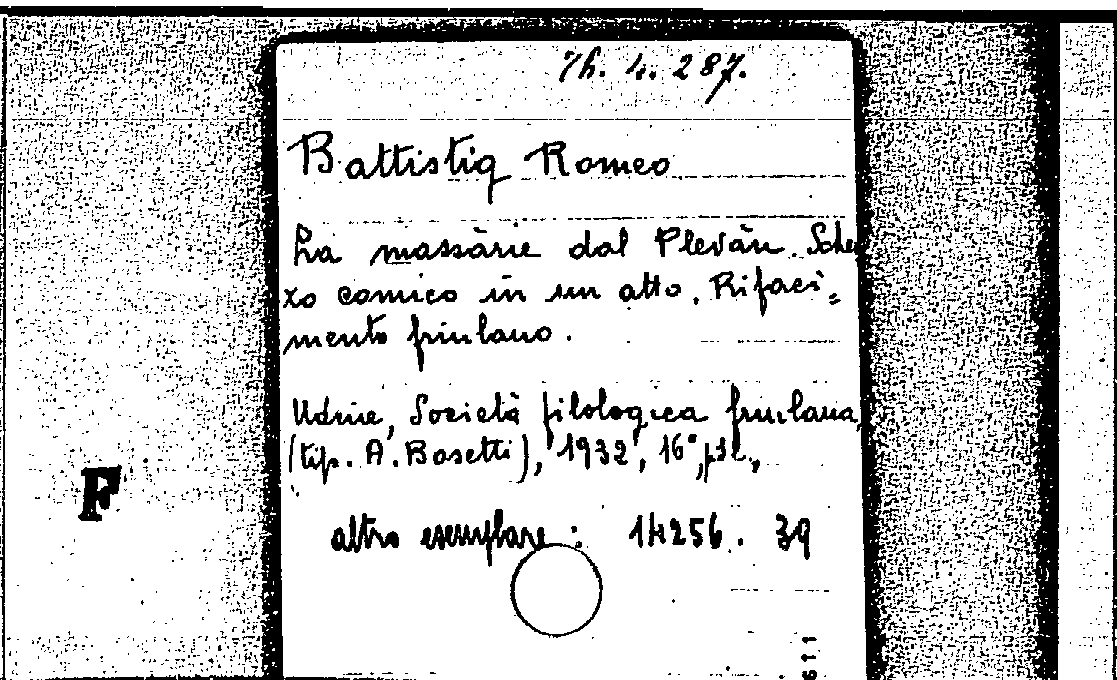 7h. 4. 287.
Battistig Romeo
La massàrie dal Plevàn. Scher
zo comico in un atto. Rifaci=
mento friulano.
Udine, Società filologica friulana,
(tip. A. Bosetti), 1932, 16°,
F
altro esemplare : 14256. 39
611